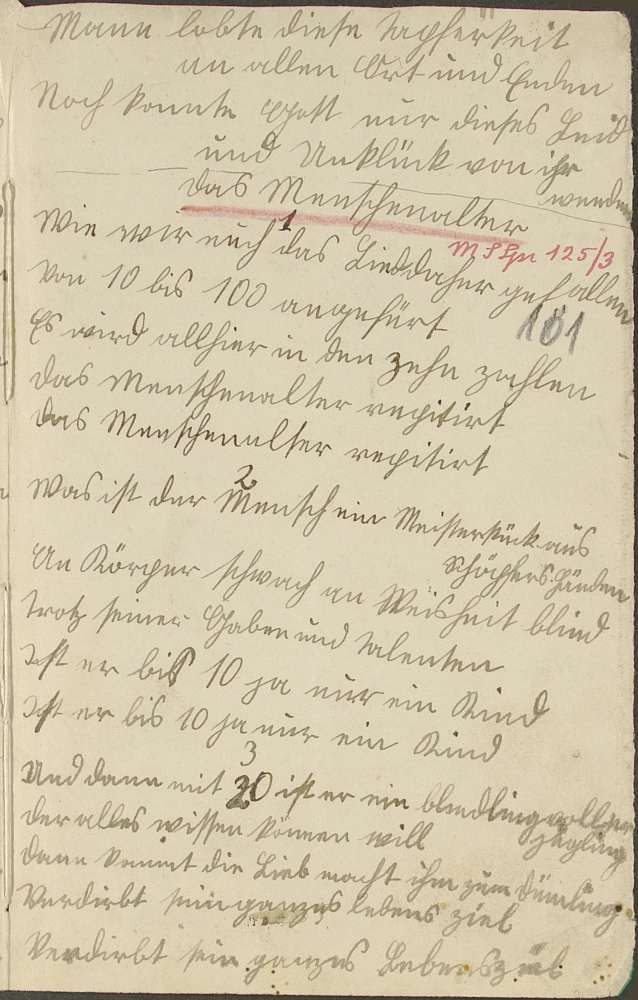 Mann lobte diese Tapferkeit
an allen Ort und Enden
Noch konnte Gott nur dieses Leid
und Unklück von ihr
wenden
Das Menschenalter
1
M S Gpr 125/3
Wie wir euch das Lied daher gefallen
Von 10 bis 100 angefürt
101
Es wird allhier in den zehn zahlen
das Menschenalter repitirt
das Menschenalter repitirt
2
Was ist der Mensch ein Meisterstück aus
Schöpfers Händen
An Körper schwach an Weisheit blind
trotz seiner Gaben und talenten
Ist er bis 10 ja nur ein Kind
Ist er bis 10 ja nur ein Kind
3
Und dann mit 20 ist er ein blindling voller
der alles wissen können will
dann kommt die Lieb macht ihn zum Dümling
Verdirbt sein ganzes lebens ziel
Verdirbt sein ganzes Lebensziel